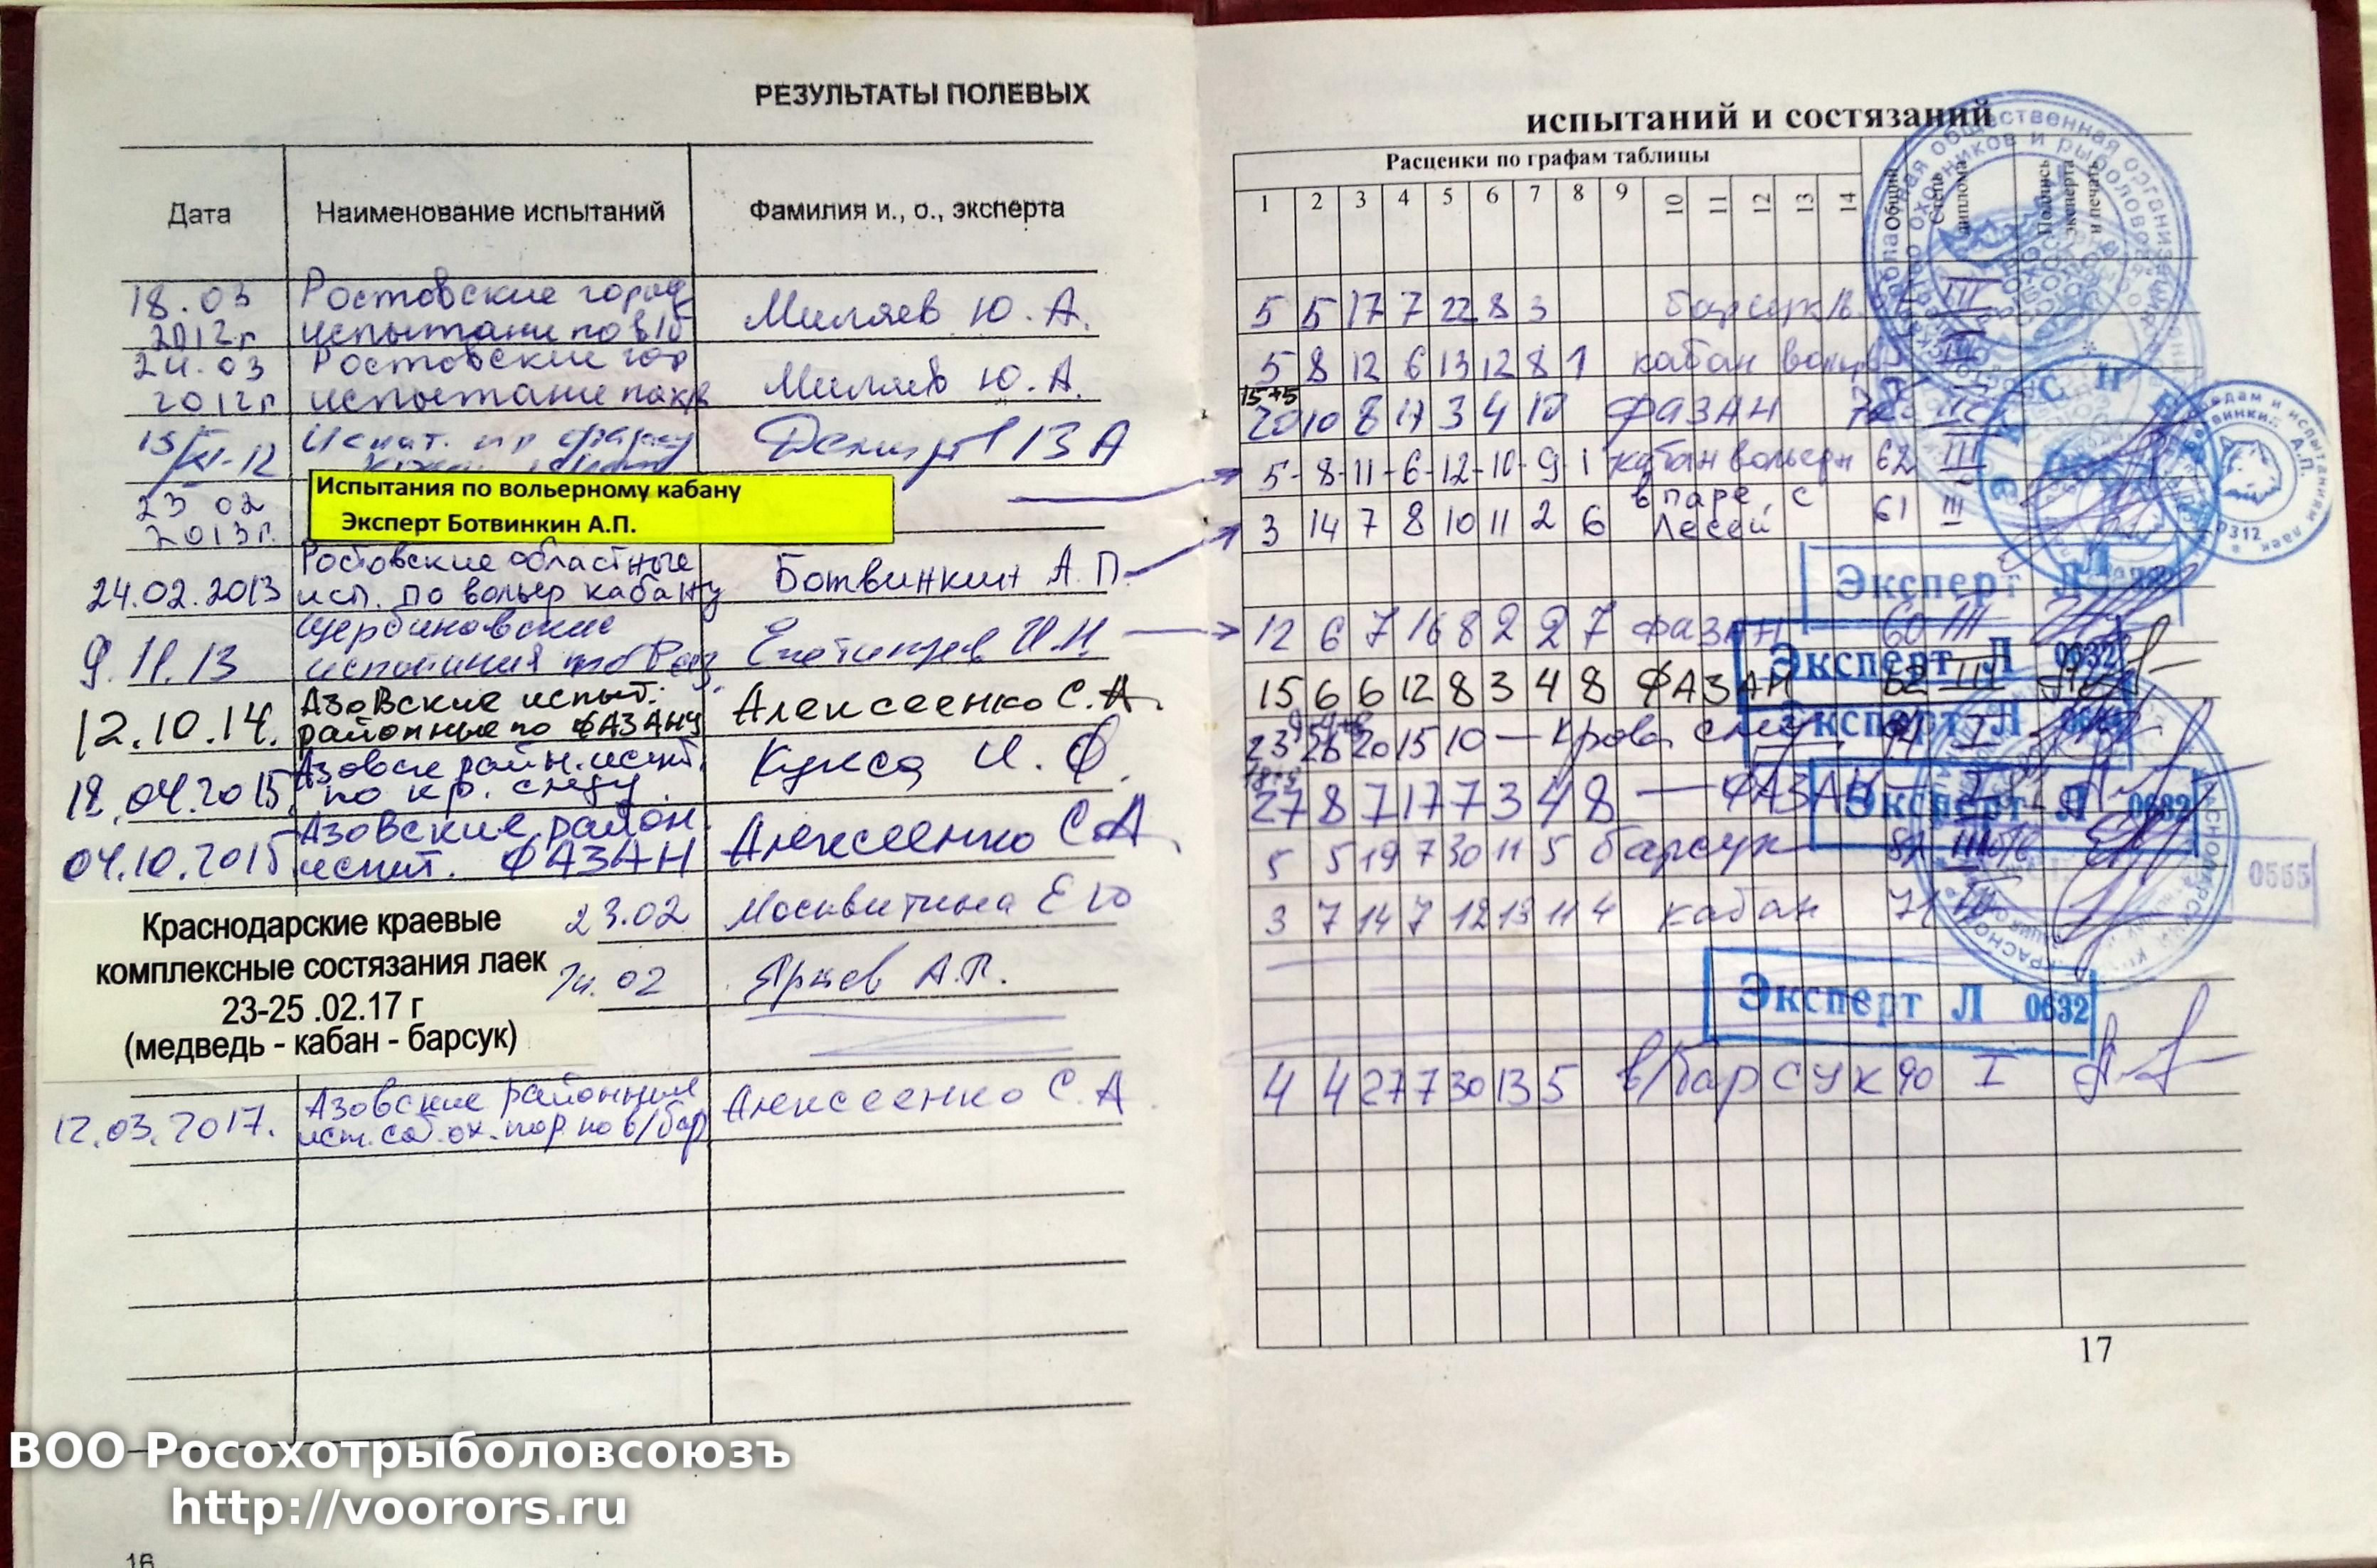 РЕЗУЛЬТАТЫ ПОЛЕВЫХ
Дата
Наименование испытаний
Фамилия и., о., эксперта
18.03
2012г
Ростовские город
испытани по в/б
Миляев Ю. А.
24.03
2012г
Ростовские гор
испытание
Миляев Ю. А.
15/XI-12
Испыт.
23 02
2013г.
Испытания по вольерному кабану
Эксперт Ботвинкин А.П.
24.02.2013
Ростовские областные
исп. по вольер кабану
Ботвинкин А. П.
9.11.13
Щербиновские
испытания
И.Н.
12.10.14.
Азовские испыт.
районные по ФАЗАНУ
Алексеенко С.А.
18.04.2015.
Азовские район. испыт.
по кр. следу.
Кукса И. Ф.
04.10.2015
Азовские район.
испыт. ФАЗАН
Алексеенко С.А.
Краснодарские краевые
комплексные состязания лаек
23-25 .02.17 г
(медведь - кабан - барсук)
23.02
Москвитина Е Ю
24.02
А.П.
12.03.2017.
Азовские районные
исп. соб. ох. пор. по в/бар
Алексеенко С. А
16
испытаний и состязаний
Расценки по графам таблицы
1 2 3 4 5 6 7 8 9 10 11 12 13 14
Общий
Степь
диплома
Подпись
эксперта
и печать
5 5 17 7 22 8 3 барсук/в. III
5 8 12 6 13 12 8 1 кабан вольер
15+5
20 10 8 17 3 4 10 ФАЗАН 72
5-8-11-6-12-10-9-1 кабан вольерн 62 III
3 14 7 8 10 11 2 6 в паре с Лесей 61 III
Эксперт
12 6 7 16 8 2 2 7 фазан 60 III
Эксперт Л 0632
15 6 6 12 8 3 4 8 ФАЗАН 62 III
Эксперт Л
23 26 20 15 10 — Кров. след I
27 8 7 17 7 3 4 8 — ФАЗАН — I
Эксперт Л 0632
5 5 19 7 30 11 5 барсук
0555
3 7 14 7 12 13 11 4 кабан 71
Эксперт Л 0632
4 4 27 7 30 13 5 в/барсук 90 I
17
ВОО Росохотрыболовсоюзъ
http://voorors.ru